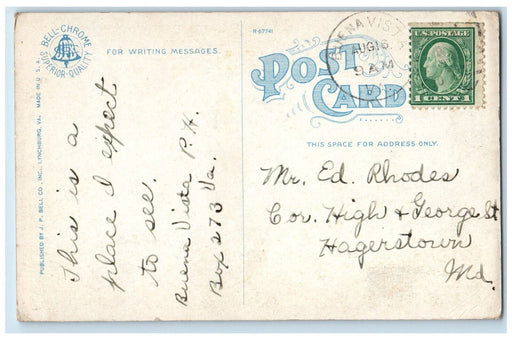 BELL-CHROME
SUPERIOR-QUALITY
PUBLISHED BY J. P. BELL CO., INC., LYNCHBURG, VA. MADE IN U. S. A.
FOR WRITING MESSAGES.
This is a
place I expect
to see.
Buena Vista P.H.
Box 273 Va.
R-67741
POST
CARD
THIS SPACE FOR ADDRESS ONLY.
AUG 16
9 AM
U.S. POSTAGE
1 CENTS 1
Mr. Ed. Rhodes
Cor. High & George St
Hagerstown
Md.